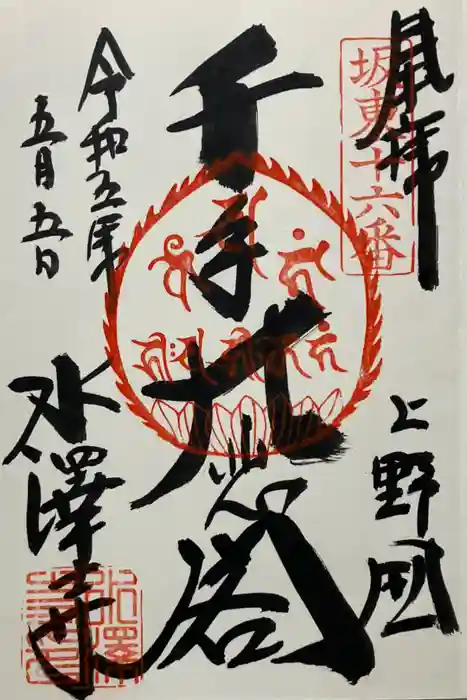 奉拝
坂東十六番
上野国
千手大悲閣
令和五年
五月五日
水澤寺